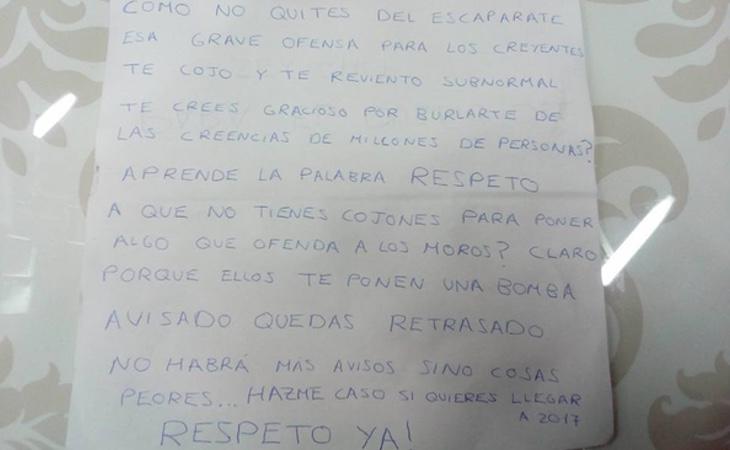 COMO NO QUITES DEL ESCAPARATE
ESA GRAVE OFENSA PARA LOS CREYENTES
TE COJO Y TE REVIENTO SUBNORMAL
TE CREES GRACIOSO POR BURLARTE DE
LAS CREENCIAS DE MILLONES DE PERSONAS?
APRENDE LA PALABRA RESPETO
A QUE NO TIENES COJONES PARA PONER
ALGO QUE OFENDA A LOS MOROS? CLARO
PORQUE ELLOS TE PONEN UNA BOMBA
AVISADO QUEDAS RETRASADO
NO HABRÁ MÁS AVISOS SINO COSAS
PEORES... HAZME CASO SI QUIERES LLEGAR
A 2017
RESPETO YA!